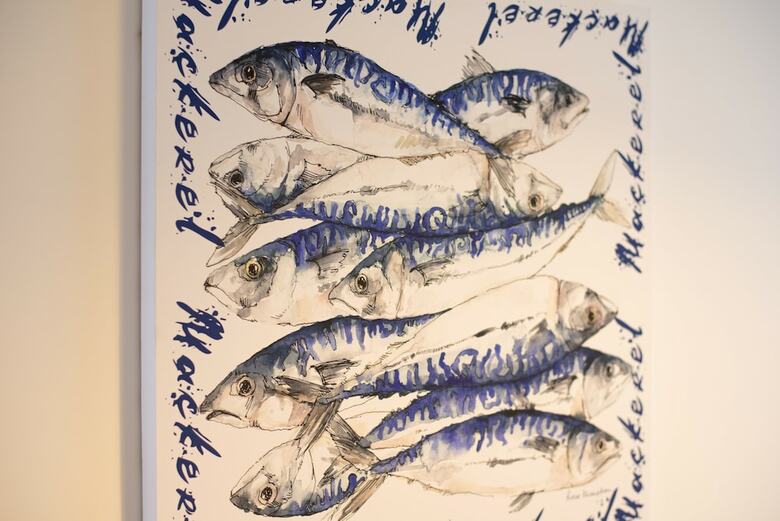 Mackerel
Mackerel
Mackerel
Mackerel
Mackerel
Mackerel
Mackerel